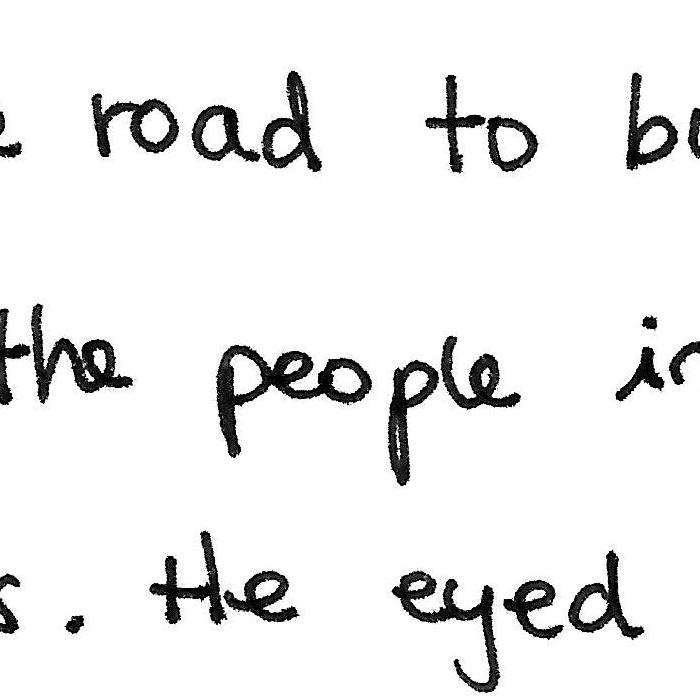 road to
the people
. He eyed